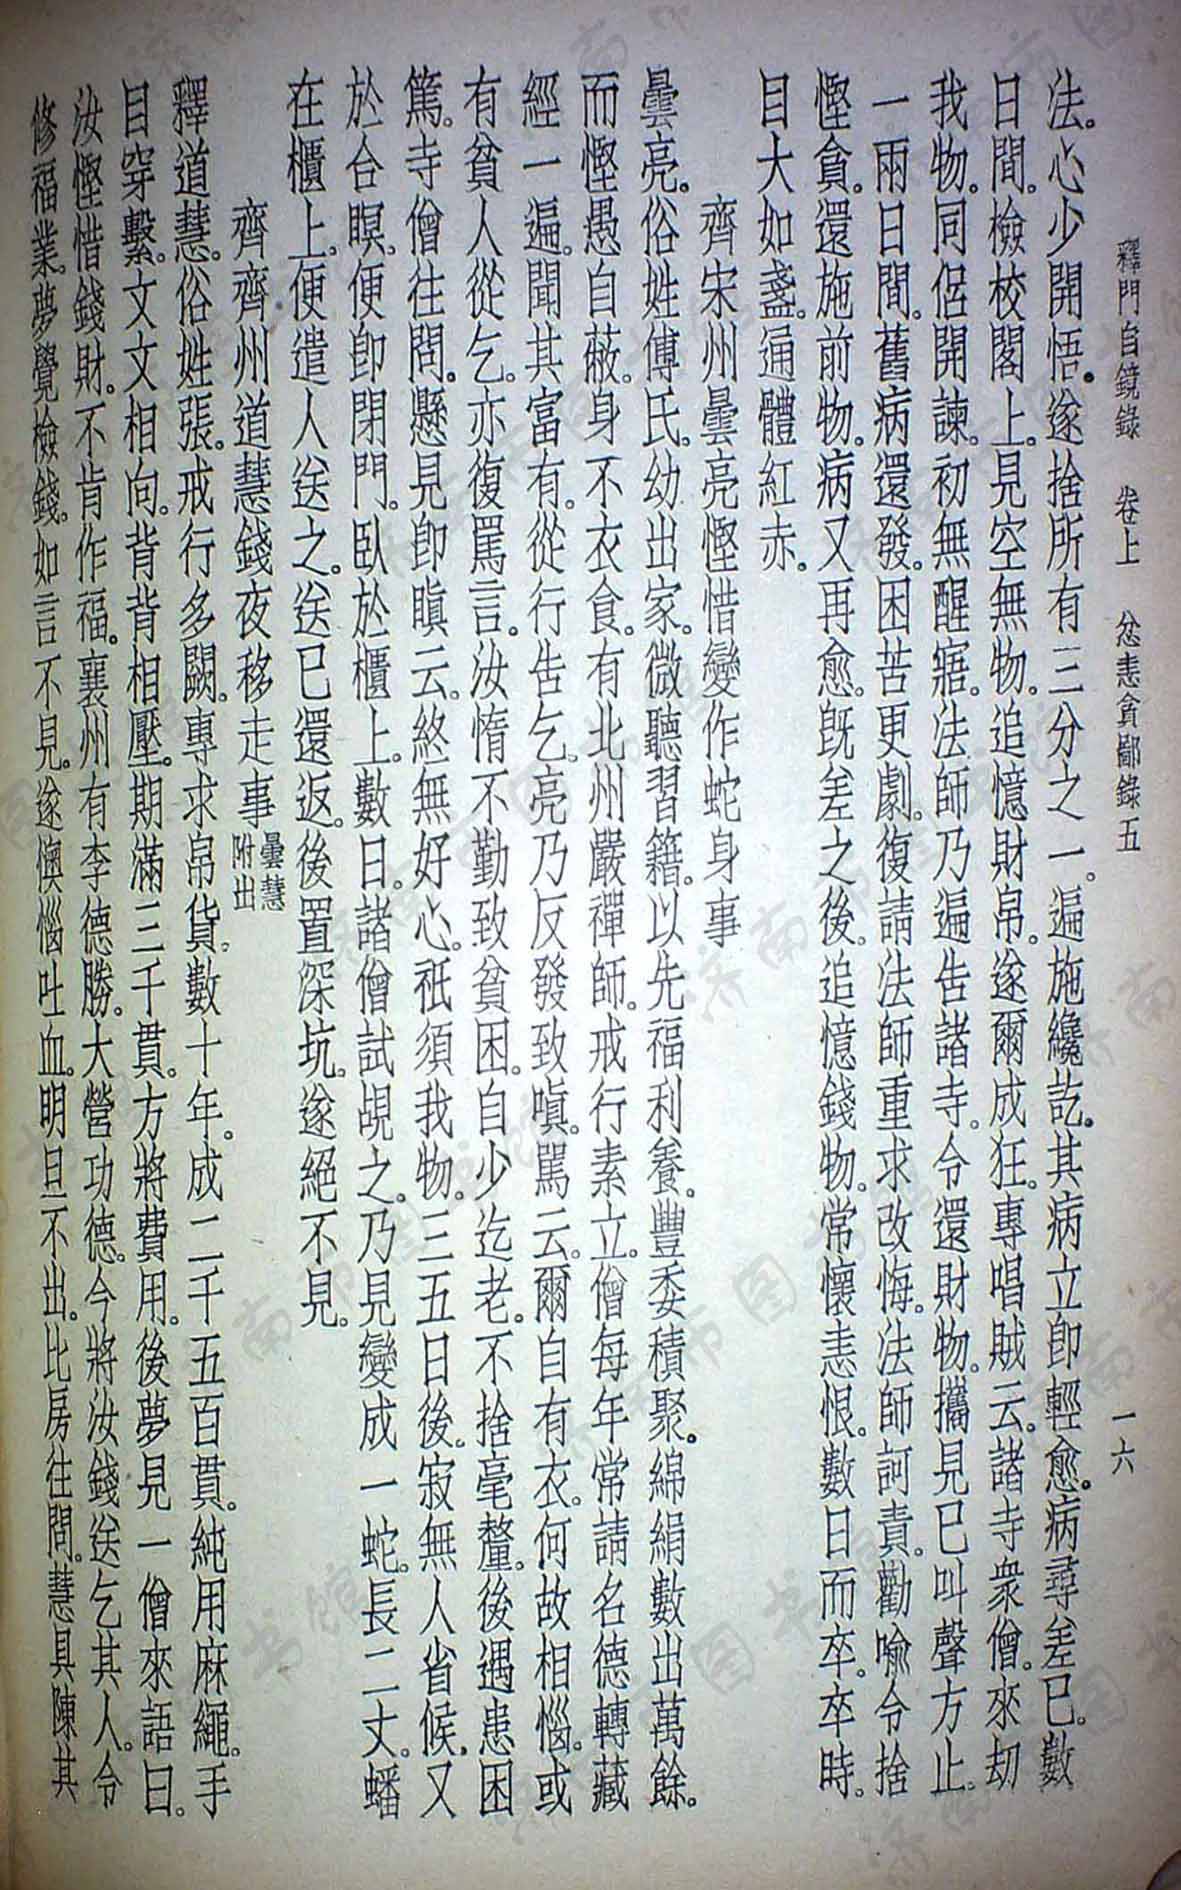 釋門自鏡錄 卷上 忿恚貪鄙錄五 一六
法。心少開悟。遂捨所有三分之一。遍施纔訖。其病立卽輕愈。病尋差已。數
日間。檢校閣上。見空無物。追憶財帛。遂爾成狂。專唱賊云。諸寺衆僧。來劫
我物。同侶開諫。初無醒寤。法師乃遍告諸寺。令還財物。攜見已叫聲方止。
一兩日間。舊病還發。困苦更劇。復請法師重求改悔。法師訶責。勸喻令捨
慳貪。還施前物。病又再愈。旣差之後。追憶錢物。常懷恚恨。數日而卒。卒時。
目大如盞。通體紅赤。
齊宋州曇亮慳惜變作蛇身事
曇亮。俗姓傅氏。幼出家。微聽習籍。以先福利養。豐委積聚。綿絹數出萬餘。
而慳愚自蔽。身不衣食。有北州嚴禪師。戒行素立。僧每年常請名德轉藏
經一遍。聞其富有。從行告乞。亮乃反發致嗔。罵云。爾自有衣。何故相惱。或
有貧人從乞。亦復罵言。汝惰不勤致貧困。自少迄老。不捨毫釐。後遇患困
篤。寺僧往問。懸見卽瞋云。終無好心。祇須我物。三五日後。寂無人省候。又
於合瞑。便卽閉門。臥於櫃上。數日。諸僧試覘之。乃見變成一蛇。長二丈。蟠
在櫃上。便遣人送之。送已還返。後置深坑。遂絕不見。
齊齊州道慧錢夜移走事曇慧附出
釋道慧。俗姓張。戒行多闕。專求帛貨。數十年。成二千五百貫。純用麻繩。手
目穿繫。文文相向。背背相壓。期滿三千貫。方將費用。後夢見一僧來語曰。
汝慳惜錢財。不肯作福。襄州有李德勝。大營功德。今將汝錢送乞其人。令
修福業。夢覺檢錢。如言不見。遂懊惱吐血。明旦不出。比房往問。慧具陳其